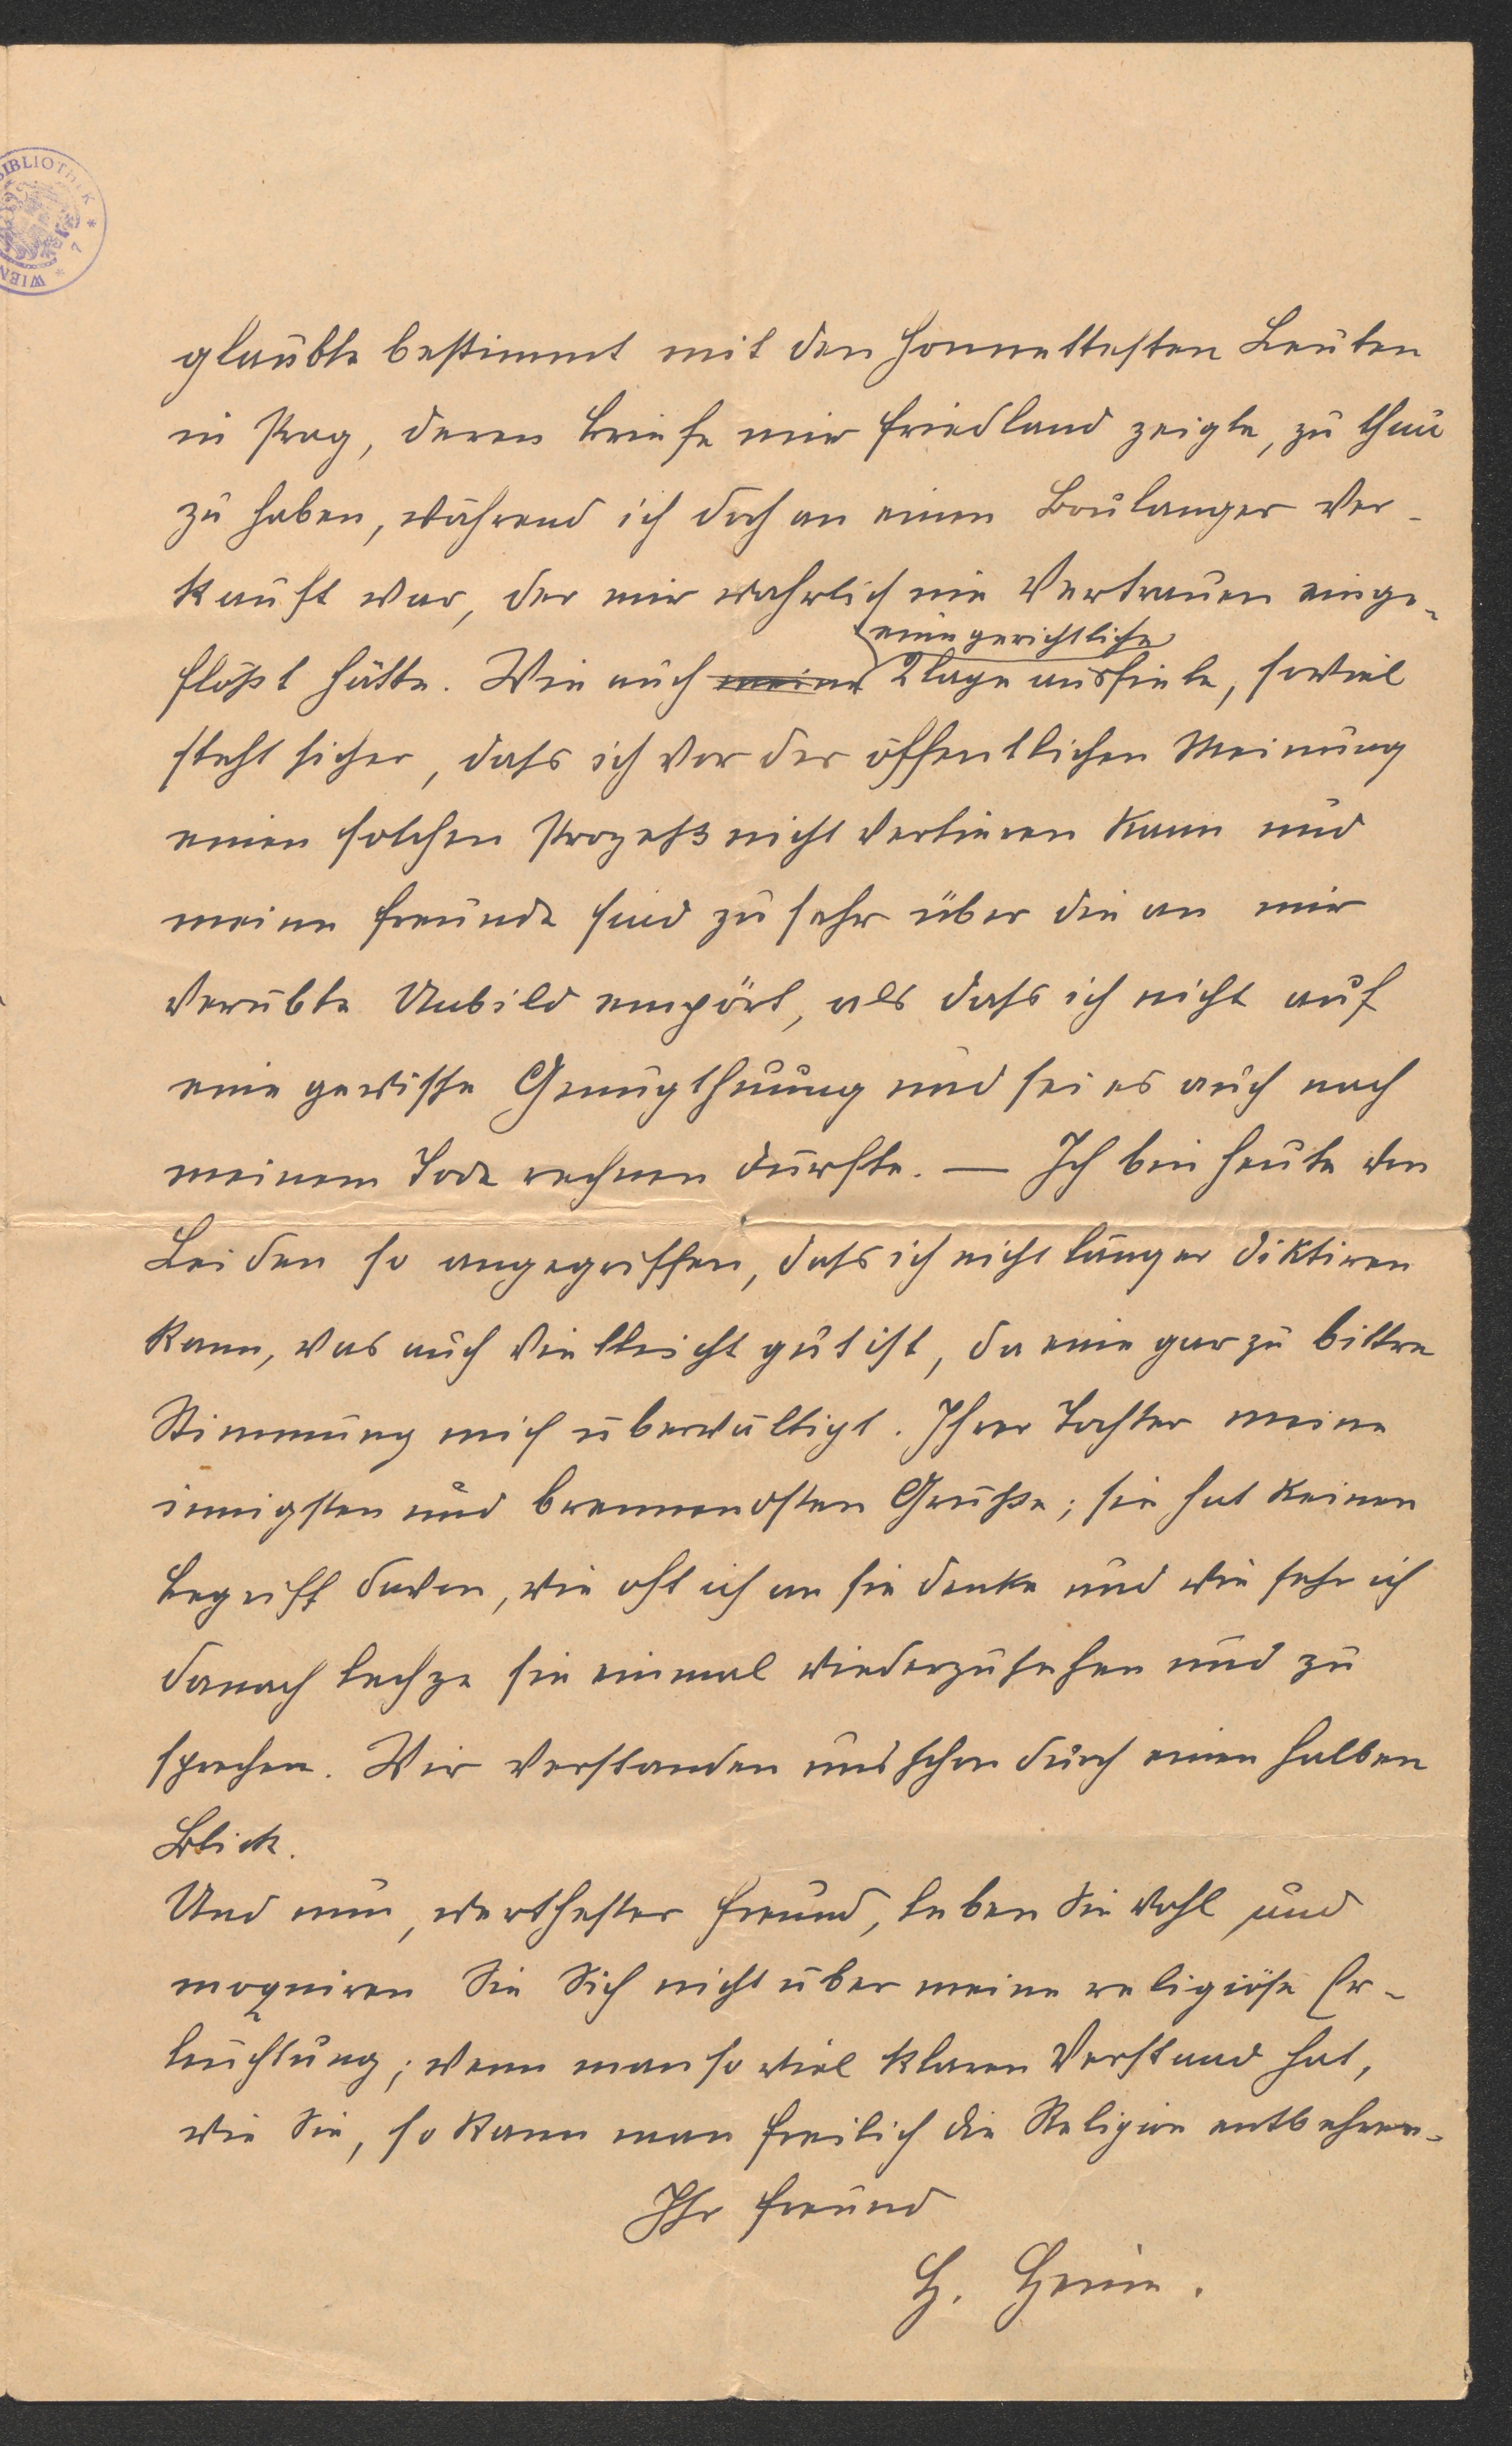 BIBLIOTHEK * 7 * WIEN
glaubte bestimmt mit den honnettesten Leuten
in Prag, deren Briefe mir Friedland zeigte, zu thun
zu haben, während ich doch an einen Boulanger ver-
kauft war, der mir wahrlich nie Vertrauen einge-
eine gerichtliche
flößt hätte. Wie auch meine Klage ausfiele, soviel
steht sicher, dass ich vor der öffentlichen Meinung
einen solchen Prozeß nicht verlieren kann und
meine Freunde sind zu sehr über die an mir
verübte Unbild empört, als dass ich nicht auf
eine gewisse Genugthuung und sei es auch nach
meinem Tode rechnen dürfte. — Ich bin heute von
Leiden so angegriffen, dass ich nicht länger diktiren
kann, was auch vielleicht gut ist, da eine gar zu bittre
Stimmung mich überwältigt. Ihrer Tochter meine
innigsten und brennendsten Grüße; sie hat keinen
Begriff davon, wie oft ich an sie denke und wie sehr ich
danach lechze sie einmal wiederzusehen und zu
sprechen. Wir verstanden uns schon durch einen halben
Blick.
Und nun, werthester Freund, leben Sie wohl und
moquiren Sie Sich nicht über meine religiöse Er-
leuchtung; wenn man so viel klaren Verstand hat,
wie Sie, so kann man freilich die Religion entbehren.
Ihr Freund
H. Heine.